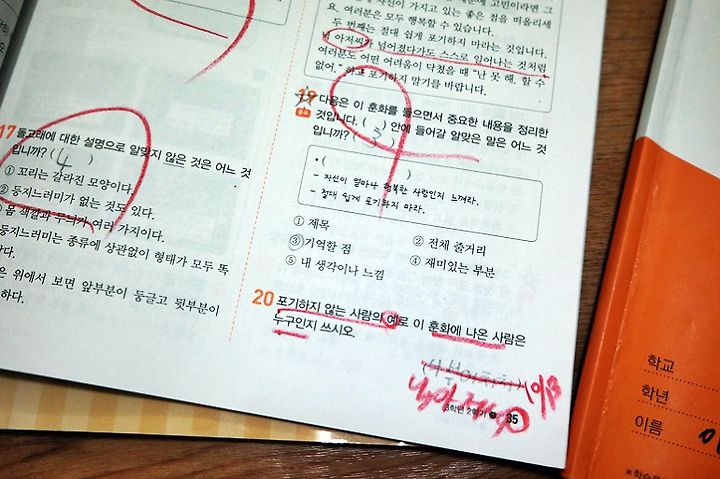 17 돌고래에 대한 설명으로 알맞지 않은 것은 어느 것
입니까? ( 4 )
① 꼬리는 갈라진 모양이다.
② 등지느러미가 없는 것도 있다.
몸 색깔과 무늬가 여러 가지이다.
등지느러미는 종류에 상관없이 형태가 모두 똑
다.
은 위에서 보면 앞부분이 둥글고 뒷부분이
하다.
자신이 가지고 있는 좋은 점을 떠올리세
요. 여러분은 모두 행복할 수 있습니다.
두 번째는 절대 쉽게 포기하지 마라는 것입니다.
아저씨가 넘어졌다가도 스스로 일어나는 것처럼
여러분도 어떤 어려움이 닥쳤을 때 "난 못 해. 할 수
없어." 하고 포기하지 말기를 바랍니다.
19 다음은 이 훈화를 들으면서 중요한 내용을 정리한
것입니다. ( )안에 들어갈 알맞은 말은 어느 것
입니까? ( 3 )
• ( )
- 자신이 얼마나 행복한 사람인지 느껴라.
- 절대 쉽게 포기하지 마라.
① 제목
② 전체 줄거리
③ 기억할 점
④ 재미있는 부분
⑤ 내 생각이나 느낌
20 포기하지 않는 사람의 예로 이 훈화에 나온 사람은
누구인지 쓰시오.
3학년 2학기 35
학교
학년
이름